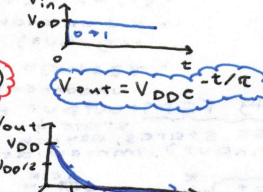 Vin
VDD
0→1
0
t
Vout = VDD e^-t/τ
Vout
VDD
VDD/2